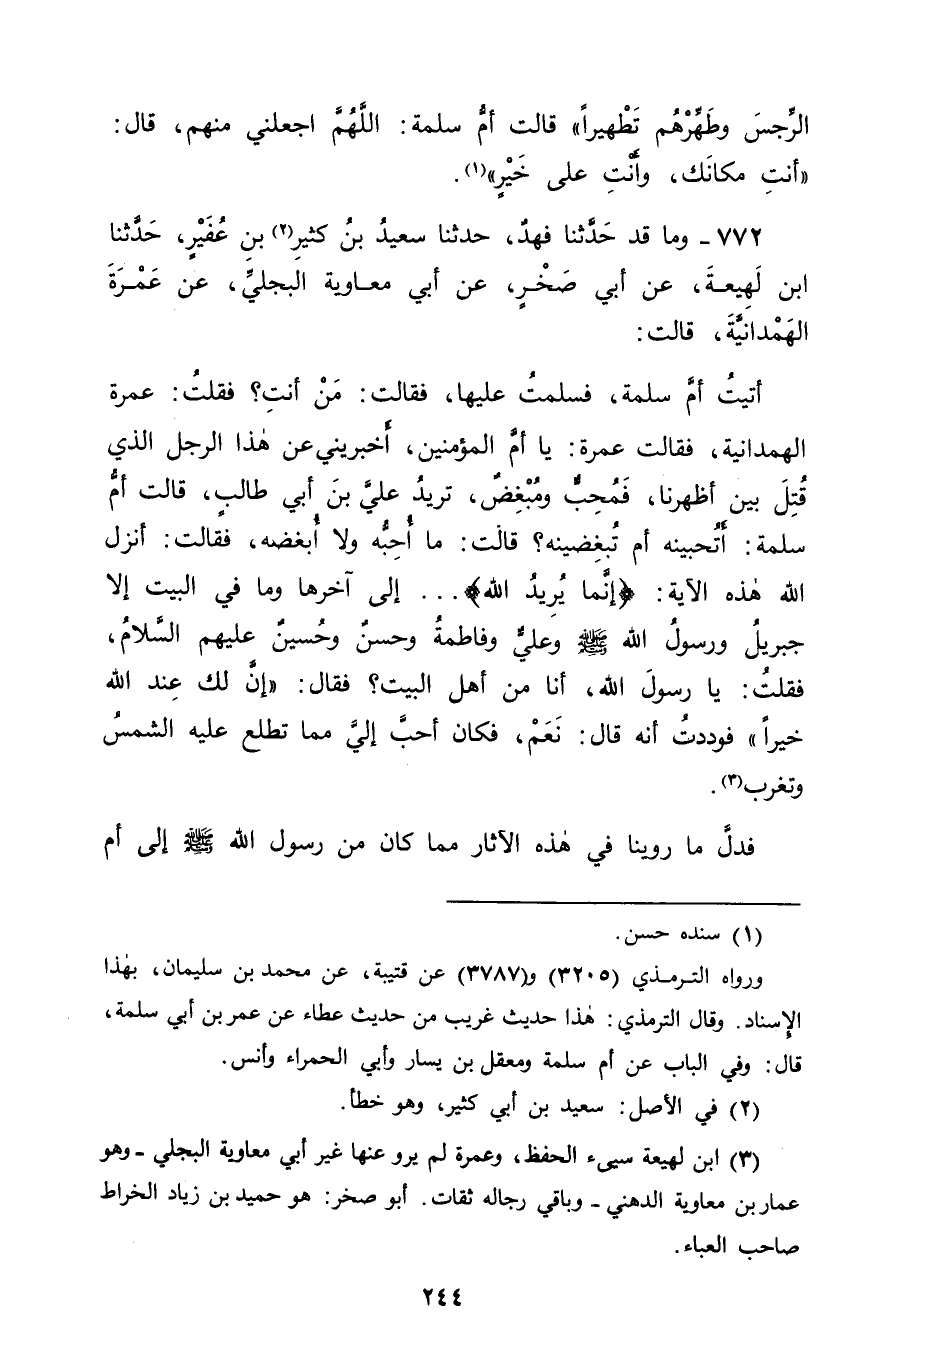 الرِّجسَ وطَهِّرْهُم تَطْهيراً» قالت أمُّ سلمة: اللَّهُمَّ اجعلني منهم، قال:
«أنتِ مكانَك، وأَنْتِ على خَيْرٍ»(١).
٧٧٢ ـ وما قد حَدَّثنا فهدٌ، حدثنا سعيدُ بنُ كثيرِ(٢) بنِ عُفَيْرٍ، حَدَّثنا
ابن لَهِيعـةَ، عن أبي صَخْـرٍ، عن أبي معـاوية البجليِّ، عن عَمْـرَةَ
الهَمْدانيَّةَ، قالت:
أتيتُ أمَّ سلمة، فسلمتُ عليها، فقالت: مَنْ أنتِ؟ فقلتُ: عمرة
الهمدانية، فقالت عمرة: يا أمَّ المؤمنين، أَخبريني عن هٰذا الرجل الذي
قُتِلَ بين أظهرنا، فَمُحِبٌّ ومُبْغِضٌ، تريدُ عليَّ بنَ أبي طالبٍ، قالت أمُّ
سلمة: أَتُحبينه أم تُبغِضينه؟ قالت: ما أُحِبُّه ولا أُبغضه، فقالت: أنزل
الله هٰذه الآية: ﴿إنَّما يُريدُ الله﴾... إلى آخرها وما في البيت إلا
جبريلُ ورسولُ الله ﷺ وعليٌّ وفاطمةُ وحسنٌ وحُسينٌ عليهم السَّلامُ،
فقلتُ: يا رسولَ الله، أنا من أهل البيت؟ فقال: «إنَّ لك عِند الله
خيراً» فوددتُ أنه قال: نَعَمْ، فكان أحبَّ إليَّ مما تطلع عليه الشمسُ
وتغرب(٣).
فدلَّ ما روينا في هٰذه الآثار مما كان من رسول الله ﷺ إلى أم
(١) سنده حسن.
ورواه التـرمـذي (٣٢٠٥) و(٣٧٨٧) عن قتيبة، عن محمد بن سليمان، بهٰذا
الإسناد. وقال الترمذي: هٰذا حديث غريب من حديث عطاء عن عمر بن أبي سلمة،
قال: وفي الباب عن أم سلمة ومعقل بن يسار وأبي الحمراء وأنس.
(٢) في الأصل: سعيد بن أبي كثير، وهو خطأ.
(٣) ابن لهيعة سيىء الحفظ، وعمرة لم يرو عنها غير أبي معاوية البجلي ـ وهو
عمار بن معاوية الدهني ـ وباقي رجاله ثقات. أبو صخر: هو حميد بن زياد الخراط
صاحب العباء.
٢٤٤